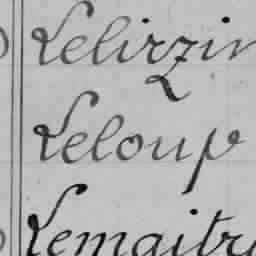 Lelirzin
Leloup
Lemaitre